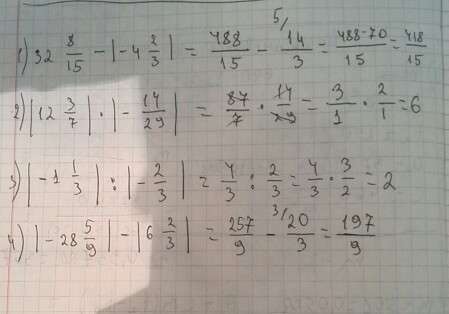 1) 32 8/15 - |-4 2/3| = 488/15 - 5/ 14/3 = 488-70/15 = 418/15
2) |12 3/7| · |- 14/29| = 87/7 · 14/29 = 3/1 · 2/1 = 6
3) |-1 1/3| : |- 2/3| = 4/3 : 2/3 = 4/3 · 3/2 = 2
4) |-28 5/9| - |6 2/3| = 257/9 - 3/ 20/3 = 197/9